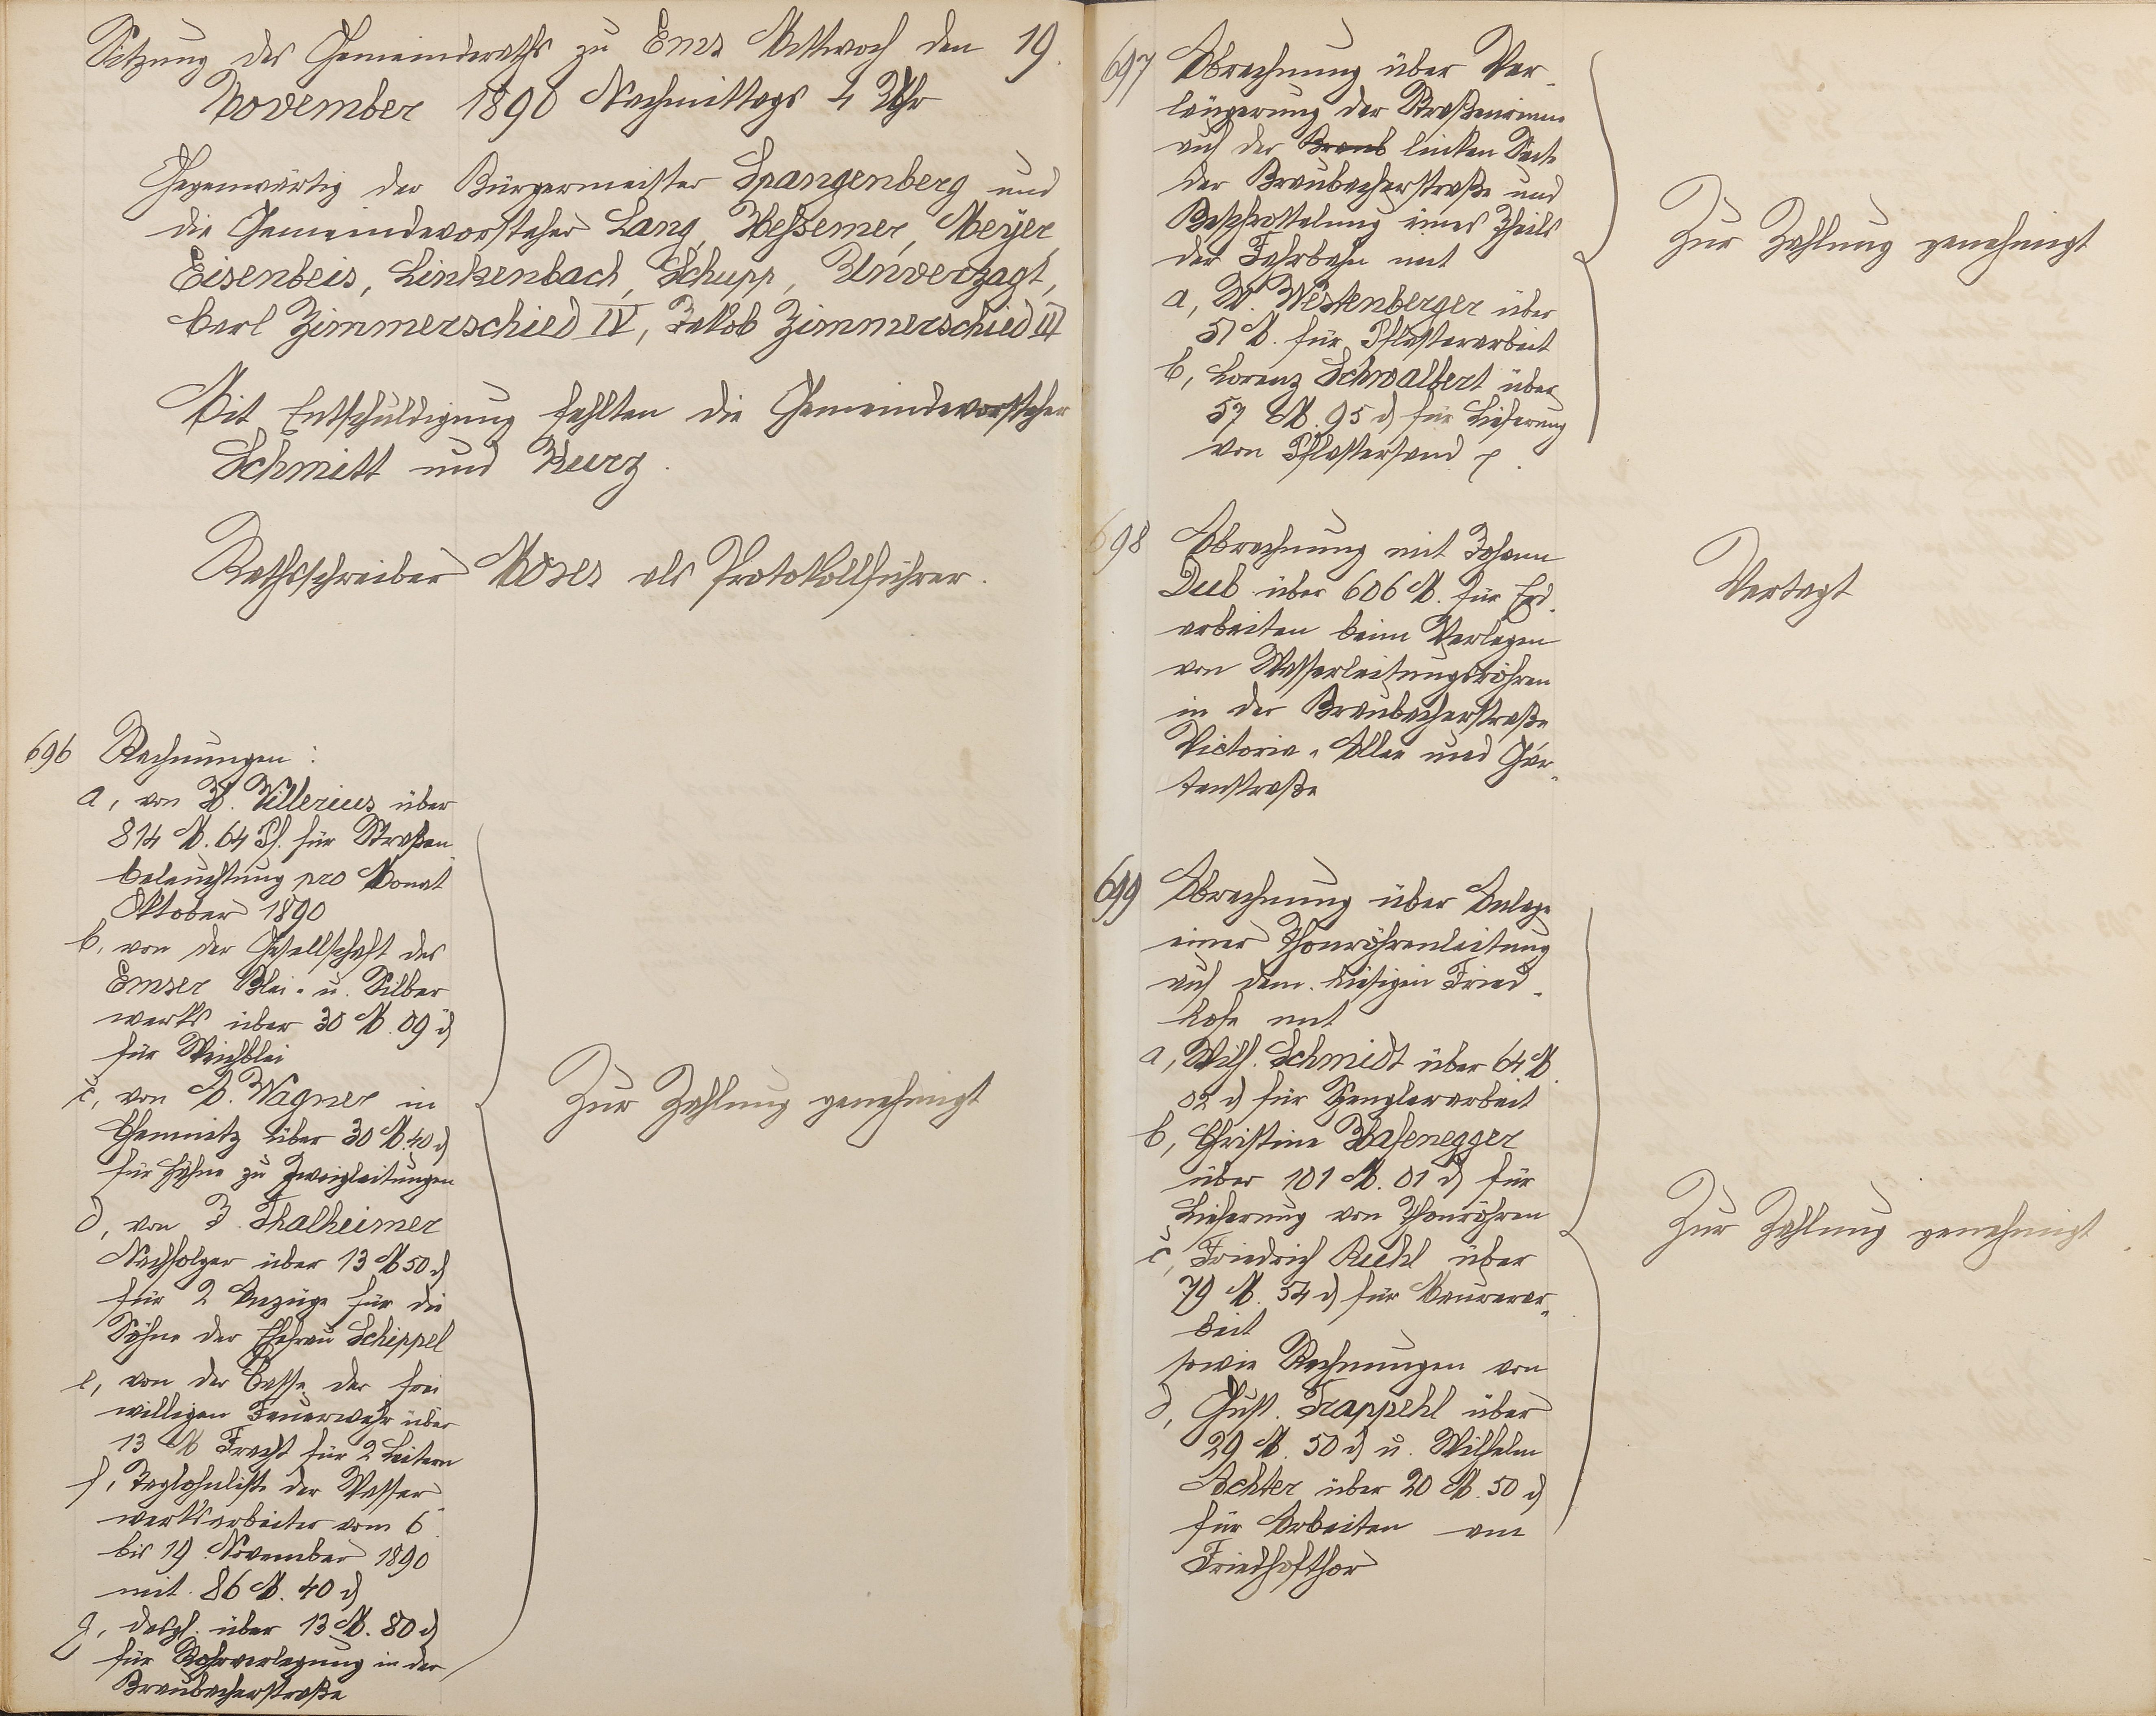 Sitzung des Gemeinderaths zu Ems Mittwoch den 19.
November 1890 Nachmittags 4 Uhr
Gegenwärtig der Bürgermeister Spangenberg und
die Gemeindevorsteher Lang, Weßemer, Meyer,
Eisenbeis, Linkenbach, Schupp, Unverzagt,
Carl Zimmerschied IV, Jakob Zimmerschied III
Mit Entschuldigung fehlten die Gemeindevorsteher
Schmitt und Kurz.
Rathsschreiber Moses als Protokollführer.
696 Rechnungen:
a, von W. Villerius über
814 M. 64 Pf. für Straßen
beleuchtung pro Monat
Oktober 1890
b, von der Gesellschaft des
Emser Blei- u. Silber
werks über 30 M. 09 d
für Weichblei
c, von A. Wagner in
Chemnitz über 30 M. 40 d
für Hähne zu Zweigleitungen
d, von J. Thalheimer
Nachfolger über 13 M 50 d
für 2 Anzüge für die
Söhne der Ehefrau Schippel
e, von der Casse der frei
willigen Feuerwehr über
13 M Fracht für 2 Leitern
f, Taglohnliste der Wasser
werksarbeiter vom 6.
bis 19. November 1890
mit 86 M. 40 d
g, desgl. über 13 M. 80 d
für Rohrverlegung in der
Braubacherstraße
Zur Zahlung genehmigt
697 Abrechnung über Ver-
längerung der Straßenrinne
auf der Braub linken Seite
der Braubacherstraße und
Beschottelung eines Theils
der Fahrbahn mit
a, W. Westenberger über
51 M. für Pflasterarbeit
b, Lorenz Schwalbert über
57 M. 95 d für Lieferung
von Pflastersand p.
Zur Zahlung genehmigt
698 Abrechnung mit Johann
Dub über 606 M. für Erd-
arbeiten beim Verlegen
von Wasserleitungsröhren
in der Braubacherstraße
Victoria-Allee und Gar-
tenstraße
Vertagt
699 Abrechnung über Anlage
einer Thonröhrenleitung
auf dem hiesigen Fried-
hofe mit
a, Wilh. Schmidt über 64 M.
02 d für Spenglerarbeit
b, Christine Hasenegger
über 101 M. 01 d für
Lieferung von Thonröhren
c, Friedrich Ruhl über
79 M. 54 d für Maurerar-
beit
sowie Rechnungen von
d, Gust. Trappehl über
29 M. 50 d u. Wilhelm
Achter über 20 M. 50 d
für Arbeiten am
Friedhofthor
Zur Zahlung genehmigt.